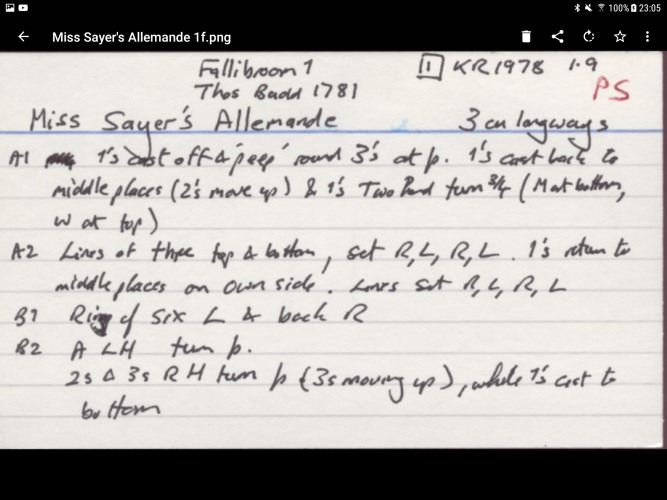 23:05 100%
Miss Sayer's Allemande 1f.png
Fallibroom 1 [1] KR 1978 1.9
Thos Budd 1781 PS
Miss Sayer's Allemande 3 cu longways
A1 1's cast off & 'peep' round 3's at p. 1's cast back to
middle places (2's move up) & 1's Two Hand turn 3/4 (M at bottom,
W at top)
A2 Lines of three top & bottom, set R, L, R, L. 1's return to
middle places on own side. Lines set R, L, R, L
B1 Ring of six L & back R
B2 A LH turn p.
2s & 3s R H turn p (3s moving up), while 1's cast to
bottom